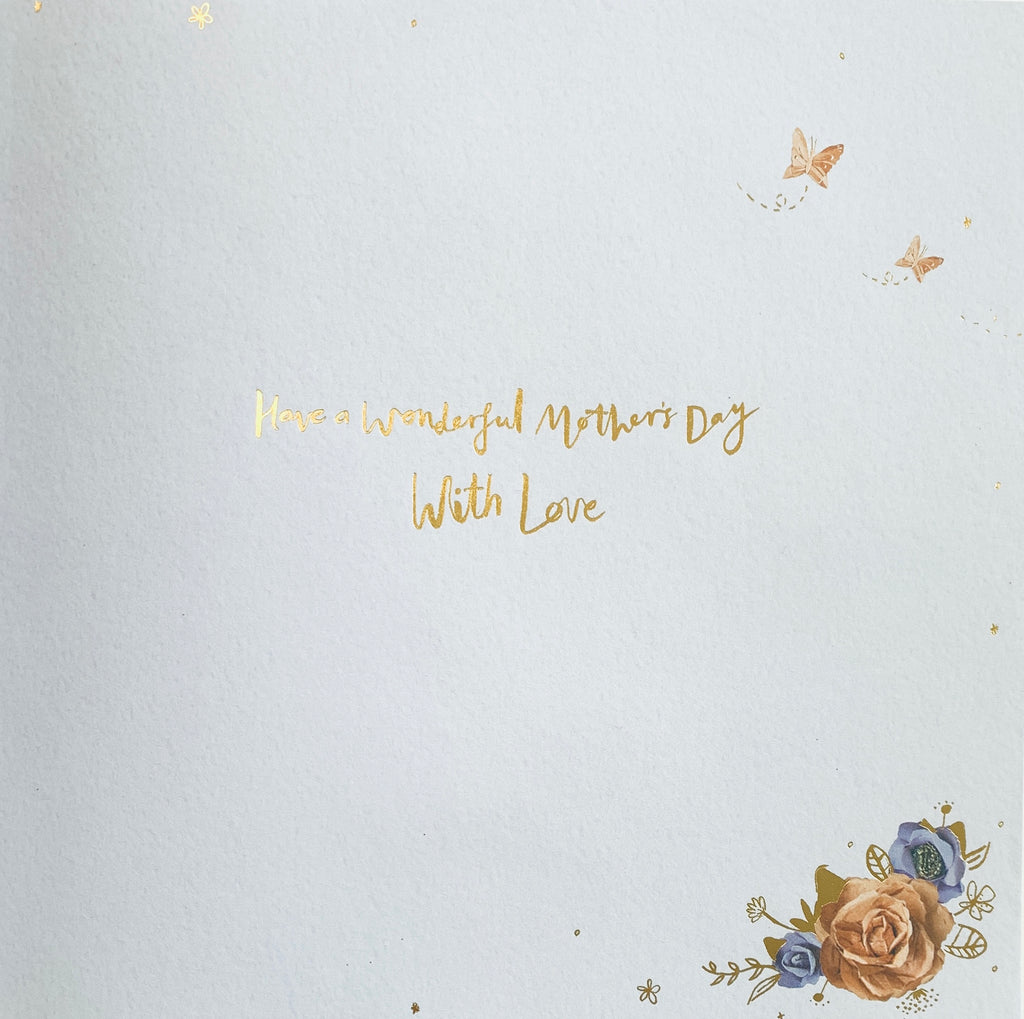 Have a Wonderful Mother's Day
With Love